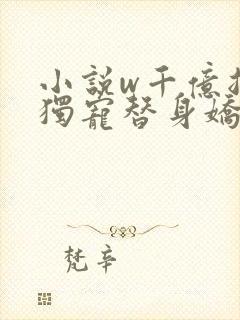 小説w千億
獨寵替身嬌
梵辛